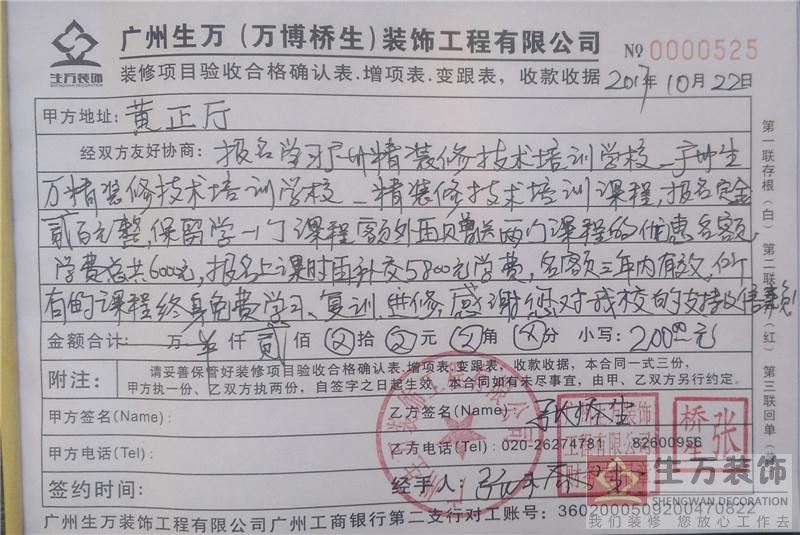 生万装饰
SHENGWAN DECORATION
广州生万（万博桥生）装饰工程有限公司
No 0000525
装修项目验收合格确认表.增项表.变跟表，收款收据
2017年10月22日
甲方地址：黄正厅
经双方友好协商：报名学习广州精装修技术培训学校－广州生
万精装修技术培训学校－精装修技术培训课程，报名定金
贰百元整，保留学一门课程名额外再赠送两门课程的优惠名额，
学费总共6000元，报名上课时再补交5800元学费，名额三年内有效，所
有的课程终身免费学习、复训、进修，感谢您对我校的支持
金额合计： 万 仟 贰 佰 拾 元 角 分 小写：200.00元
附注：
请妥善保管好装修项目验收合格确认表、增项表.变跟表，收款收据，本合同一式三份，
甲方执一份、乙双方执两份，自签字之日起生效。本合同如有未尽事宜，由甲、乙双方另行约定。
甲方签名(Name)：
乙方签名(Name)：张桥生
甲方电话(Tel)：
乙方电话(Tel)：020-26274781 82600956
签约时间：
经手人：
广州生万装饰工程有限公司广州工商银行第二支行对工账号：3602000509200470822
第一联存根（白）第二联
（红）第三联回单
桥生张
生万装饰
SHENGWAN DECORATION
我们装修 您放心工作去